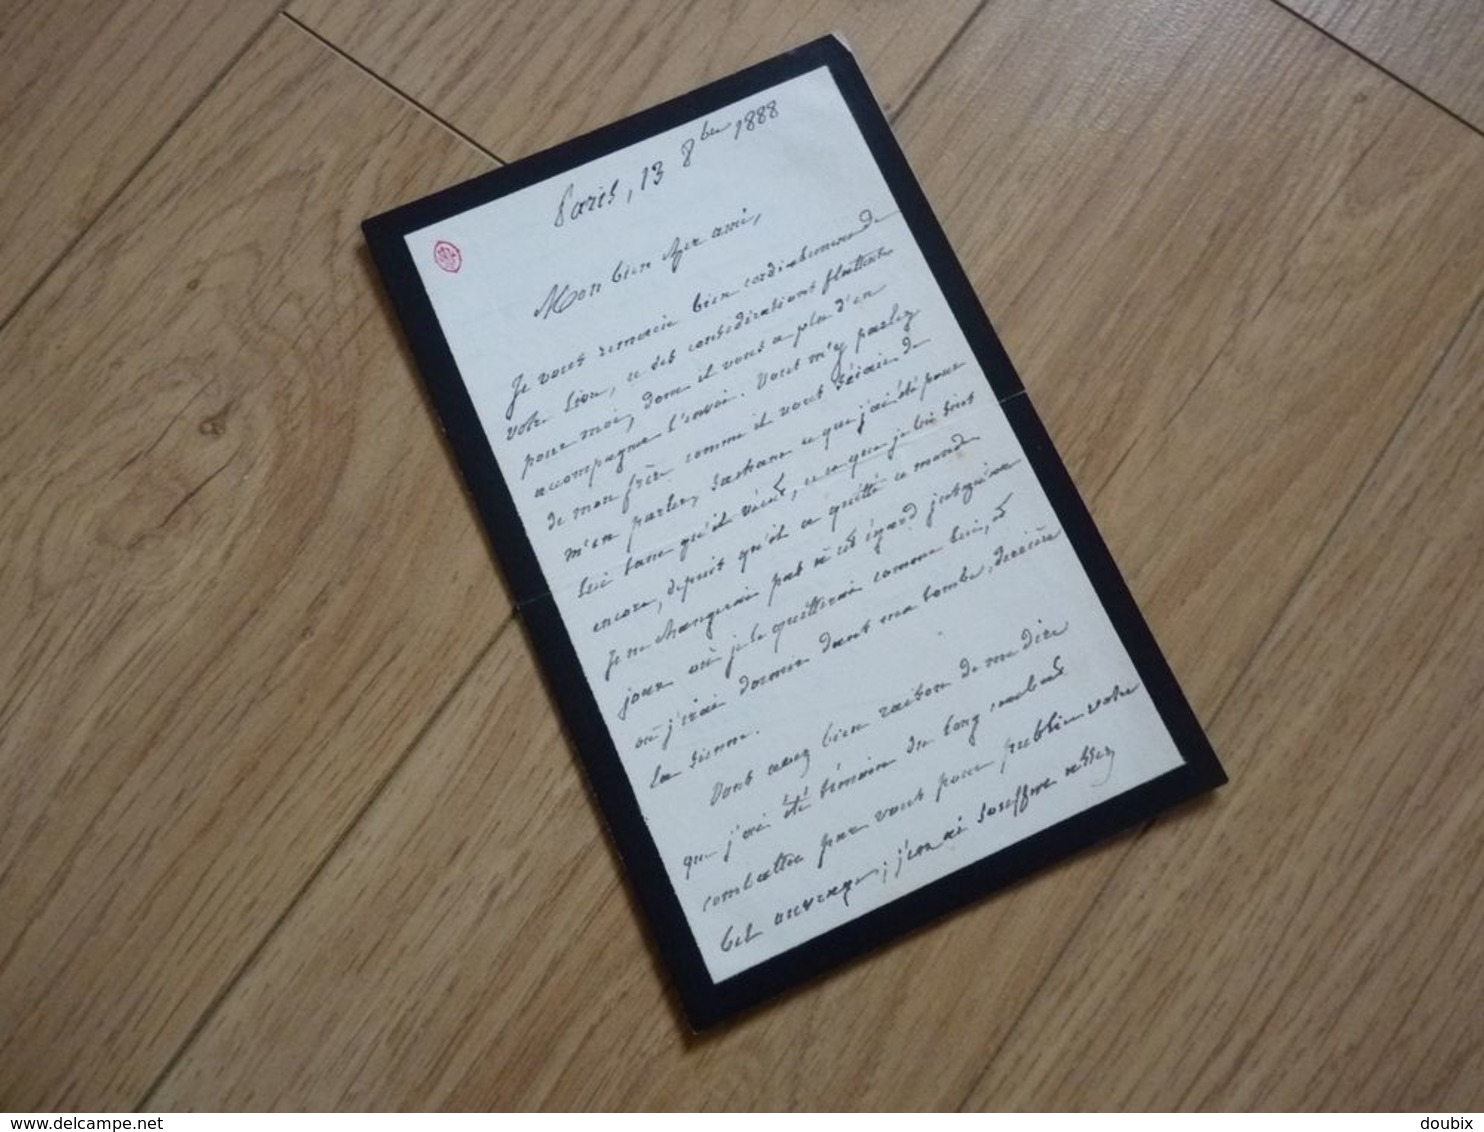 Paris, 13 8bre 1888
Mon bien cher ami,
Je vous remercie bien cordialement de
votre livre, et des considérations flatteuses
pour moi, dont il vous a plu d'en
accompagner l'envoi. Vous m'y parlez
de mon frère comme il vous séiait de
m'en parler, sachant ce que j'ai été pour
lui tant qu'il vécut, et ce que je lui suis
encore, depuis qu'il a quitté ce monde
Je ne changerai pas à cet égard jusqu'au
jour où je le quitterai comme lui, et
où j'irai dormir dans ma tombe, derrière
la sienne.
Vous avez bien raison de me dire
que j'ai été témoin du long combat
combattu par vous pour publier votre
bel ouvrage; j'en ai souffert assez
www.delcampe.net
doubix